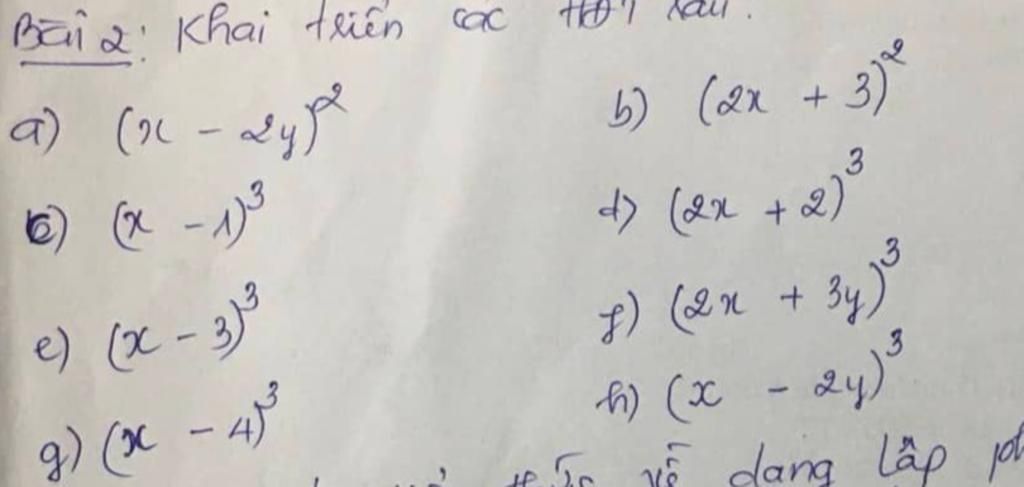 Bài 2: Khai triển các HĐT sau:
a) (x - 2y)² b) (2x + 3)²
c) (x - 1)³ d) (2x + 2)³
e) (x - 3)³ f) (2x + 3y)³
g) (x - 4)³ h) (x - 2y)³
về dạng lập